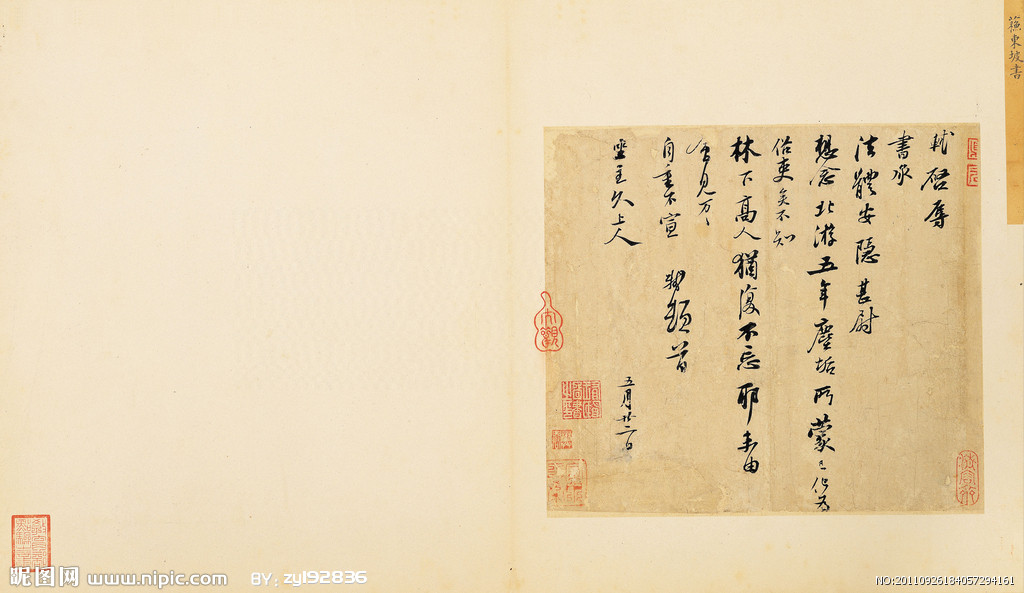 蘓東坡書
軾啓辱
書承
法體安隱甚尉
想念北游五年塵垢所蒙已化為
俗吏矣不知
林下高人猶復不忘耶未由
會見万〻
自重不宣 軾頓首
坐主久上人
五月廿二日
昵图网 www.nipic.com
BY:zyl92836
NO:20110926184057294161